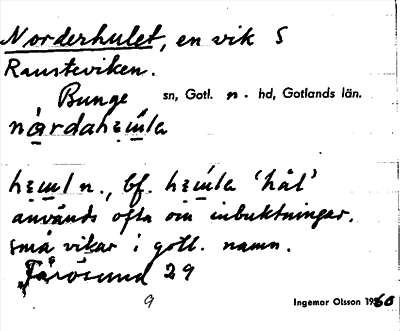 Norderhulet, en vik S
Rausteviken.
Bunge sn, Gotl. n. hd, Gotlands län.
nårdahẹḿ̲la
hẹm̲l n., bf. hẹḿla 'hål'
används ofta om inbuktningar.
små vikar i gotl. namn.
Fårösund 29
9
Ingemar Olsson 1960